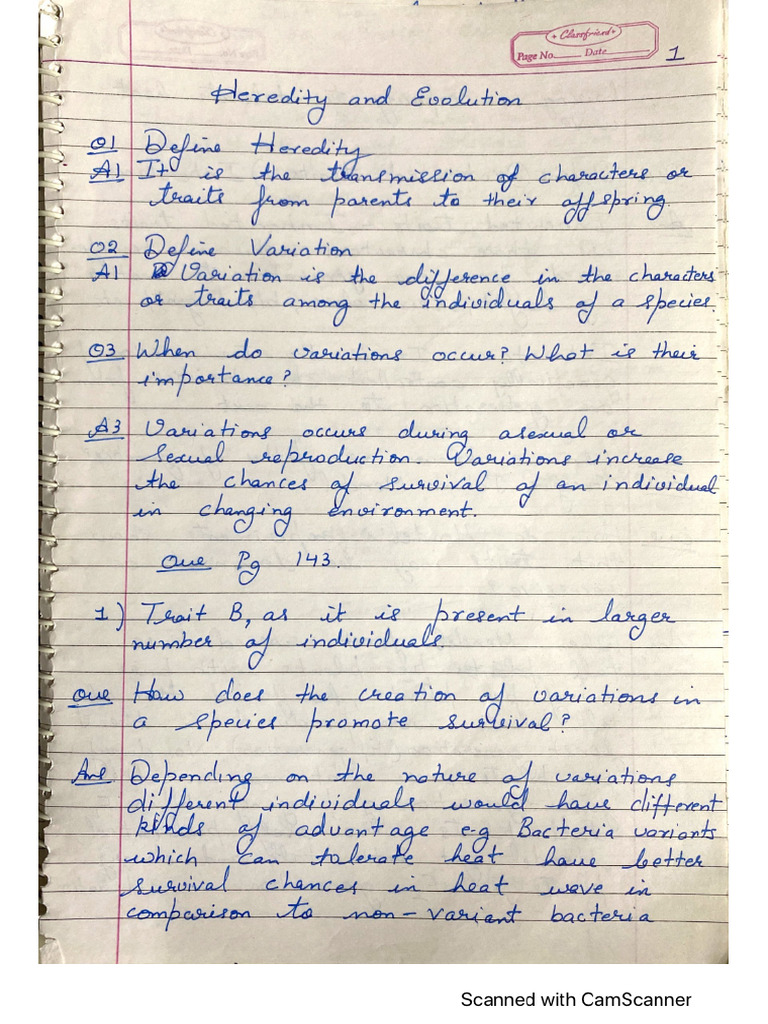 Classfriend
Page No. Date
1
Heredity and Evolution
Q1 Define Heredity
A1 It is the transmission of characters or
traits from parents to their offspring.
Q2 Define Variation
A1 Variation is the difference in the characters
or traits among the individuals of a species.
Q3 When do variations occur? What is their
importance?
A3 Variations occurs during asexual or
sexual reproduction. Variations increase
the chances of survival of an individual
in changing environment.
Que Pg 143.
1) Trait B, as it is present in larger
number of individuals.
Que How does the creation of variations in
a species promote survival?
Ans Depending on the nature of variations
different individuals would have different
kinds of advantage e.g Bacteria variants
which can tolerate heat have better
survival chances in heat wave in
comparison to non-variant bacteria
Scanned with CamScanner